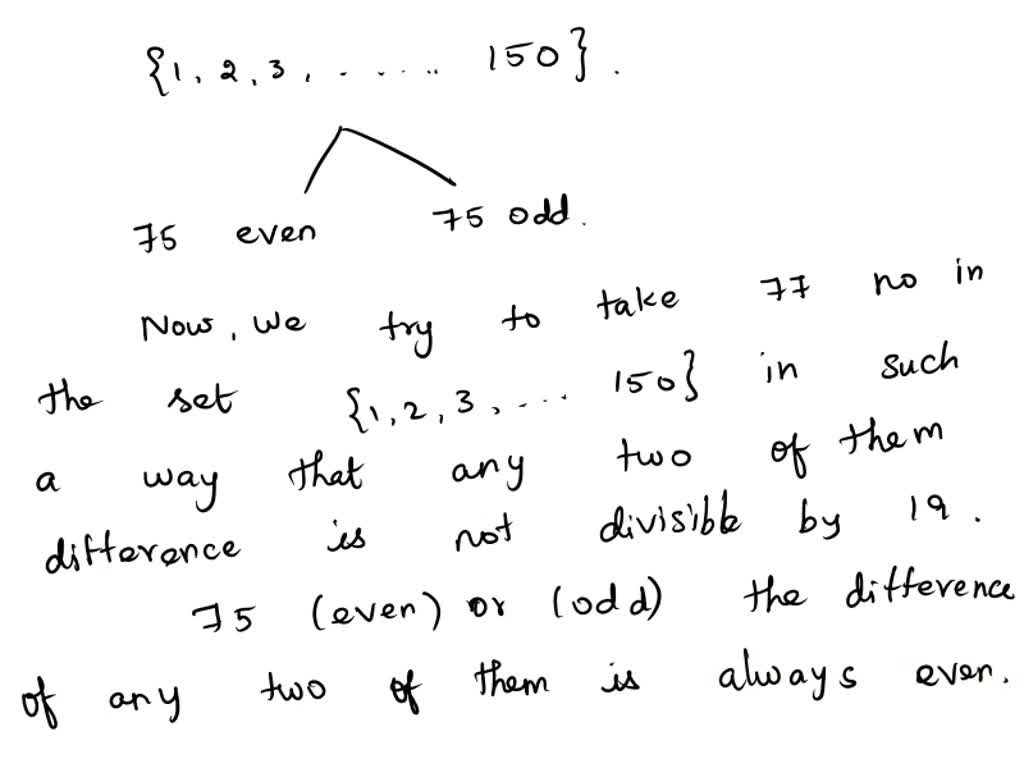 {1, 2, 3, . . . . .. 150} .
75 even 75 odd.
Now, we try to take 77 no in
the set {1, 2, 3, ... . 150} in such
a way that any two of them
difference is not divisible by 19 .
75 (even) or (odd) the difference
of any two of them is always even.